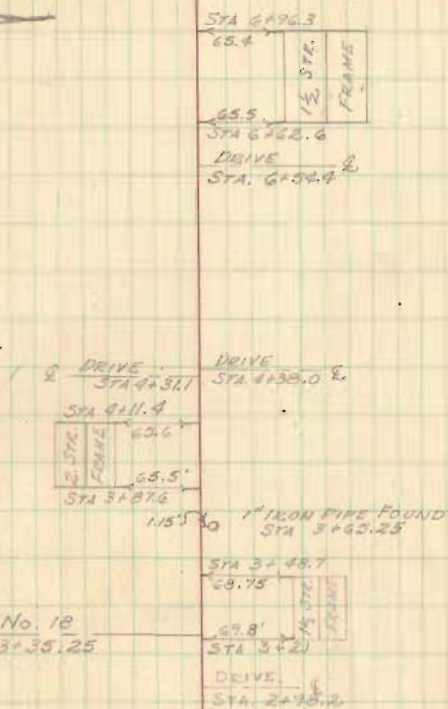 STA 6+96.3
65.4
1½ STR.
FRAME
65.5
STA 6+62.6
DRIVE ℄
STA. 6+54.4
℄ DRIVE
STA 4+31.1
DRIVE ℄
STA 4+38.0
STA 4+11.4
65.6
2 STR.
FRAME
65.5'
STA 3+87.6
1.15'
1" IRON PIPE FOUND
STA 3+65.25
STA 3+48.7
68.75
1½ STR.
FRAME
No. 18
3+35.25
69.8'
STA 3+21
DRIVE ℄
STA. 2+98.2